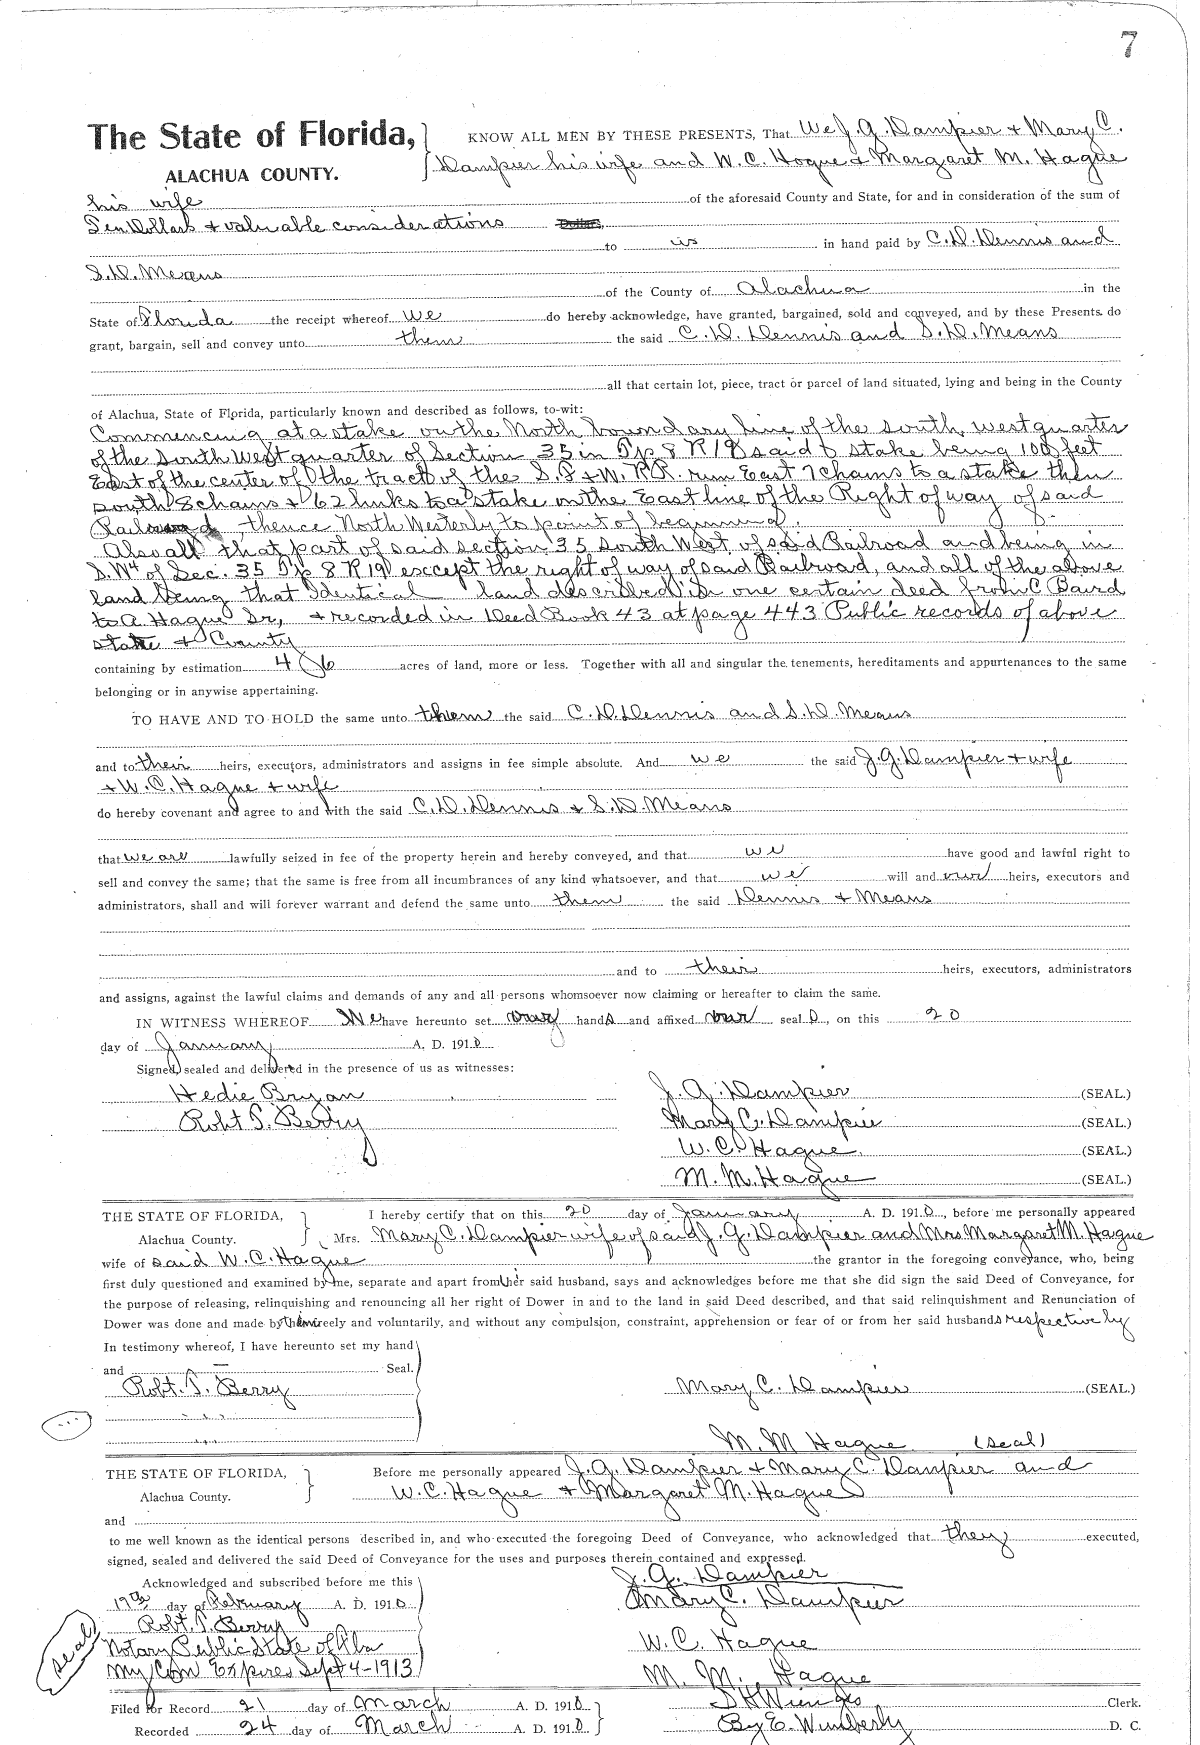 7
The State of Florida, KNOW ALL MEN BY THESE PRESENTS, That We J. G. Dampier + Mary C.
ALACHUA COUNTY. Dampier his wife and W. C. Hogue + Margaret M. Hague
his wife of the aforesaid County and State, for and in consideration of the sum of
Ten Dollars + valuable considerations Dollars,
to us in hand paid by C. D. Dennis and
S. D. Means
of the County of Alachua in the
State of Florida the receipt whereof we do hereby acknowledge, have granted, bargained, sold and conveyed, and by these Presents do
grant, bargain, sell and convey unto them the said C. D. Dennis and S. D. Means
all that certain lot, piece, tract or parcel of land situated, lying and being in the County
of Alachua, State of Florida, particularly known and described as follows, to-wit:
Commencing at a stake on the North boundary line of the south west quarter
of the South West quarter of Section 35 in Tp 8 R 19 said stake being 100 feet
East of the center of the tract of the S. F. + W. R.R. run East 7 chains to a stake then
south 8 chains + 62 links to a stake on the East line of the Right of way of said
Railroad, thence North Westerly to point of beginning.
Also all that part of said section 35 South West of said Railroad and being in
S.W4 of Sec. 35 Tp 8 R 19 esccept the right of way of said Railroad, and all of the above
land being that Identical land described in one certain deed from C Baird
to A. Hague Sr, + recorded in Deed Book 43 at page 443 Public records of above
state + County
containing by estimation 46 acres of land, more or less. Together with all and singular the tenements, hereditaments and appurtenances to the same
belonging or in anywise appertaining.
TO HAVE AND TO HOLD the same unto them the said C. D. Dennis and S. D. Means
and to their heirs, executors, administrators and assigns in fee simple absolute. And we the said J. G. Dampier + wife
+ W. C. Hague + wife
do hereby covenant and agree to and with the said C. D. Dennis + S. D. Means
that we are lawfully seized in fee of the property herein and hereby conveyed, and that we have good and lawful right to
sell and convey the same; that the same is free from all incumbrances of any kind whatsoever, and that we will and our heirs, executors and
administrators, shall and will forever warrant and defend the same unto them the said Dennis + Means
and to their heirs, executors, administrators
and assigns, against the lawful claims and demands of any and all persons whomsoever now claiming or hereafter to claim the same.
IN WITNESS WHEREOF We have hereunto set our hands and affixed our seal s, on this 20
day of January A. D. 1910
Signed, sealed and delivered in the presence of us as witnesses:
Hedie Bryan J. G. Dampier (SEAL.)
Robt. S. Berry Mary C. Dampier (SEAL.)
W. C. Hague. (SEAL.)
M. M. Hague (SEAL.)
THE STATE OF FLORIDA, I hereby certify that on this 20 day of January A. D. 1910, before me personally appeared
Alachua County. Mrs. Mary C. Dampier wife of said J. G. Dampier and Mrs Margaret M. Hague
wife of said W. C. Hague the grantor in the foregoing conveyance, who, being
first duly questioned and examined by me, separate and apart from her said husband, says and acknowledges before me that she did sign the said Deed of Conveyance, for
the purpose of releasing, relinquishing and renouncing all her right of Dower in and to the land in said Deed described, and that said relinquishment and Renunciation of
Dower was done and made by them freely and voluntarily, and without any compulsion, constraint, apprehension or fear of or from her said husbands respectively
In testimony whereof, I have hereunto set my hand
and Seal.
Robt. S. Berry Mary C. Dampier (SEAL.)
M. M Hague (seal)
THE STATE OF FLORIDA, Before me personally appeared J. G. Dampier + Mary C. Dampier and
Alachua County. W. C. Hague + Margaret M. Hague
and
to me well known as the identical persons described in, and who executed the foregoing Deed of Conveyance, who acknowledged that they executed,
signed, sealed and delivered the said Deed of Conveyance for the uses and purposes therein contained and expressed.
Acknowledged and subscribed before me this J. G. Dampier
19th day of February A. D. 1910 Mary C. Dampier
Robt. S. Berry
seal Notary Public State of Fla W. C. Hague
My Com Expires Sept 4-1913 M. M. Hague
Filed for Record 21 day of March A. D. 1910 S H Wienges Clerk.
Recorded 24 day of March A. D. 1910 By E. Wimberly D. C.